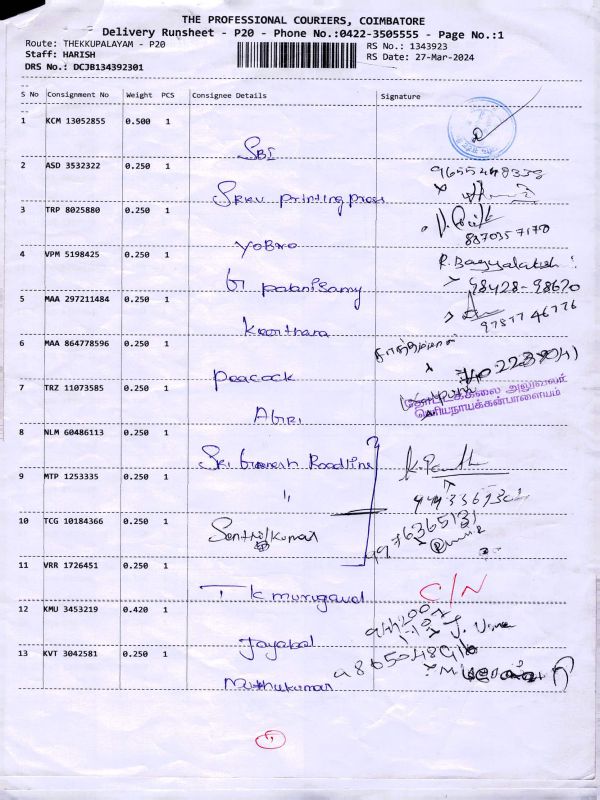 THE PROFESSIONAL COURIERS, COIMBATORE
Delivery Runsheet - P20 - Phone No.:0422-3505555 - Page No.:1
Route: THEKKUPALAYAM - P20
RS No.: 1343923
Staff: HARISH
RS Date: 27-Mar-2024
DRS No.: DCJB134392301
S No Consignment No Weight PCS Consignee Details Signature
1 KCM 13052855 0.500 1
SBI
2 ASD 3532322 0.250 1
printing press
3 TRP 8025880 0.250 1
8870357170
YOBRO
4 VPM 5198425 0.250 1
palanisamy
98428-98670
5 MAA 297211484 0.250 1
Keerthana
97877 46776
6 MAA 864778596 0.250 1
Peacock
7 TRZ 11073585 0.250 1
தோட்டக்கலை அலுவலர்
பெரியநாயக்கன்பாளையம்
AGRI
8 NLM 60486113 0.250 1
Sri Ganesh Roadline
9 MTP 1253335 0.250 1
"
10 TCG 10184366 0.250 1
Senthilkumar
11 VRR 1726451 0.250 1
T K murugavel
C/N
12 KMU 3453219 0.420 1
Jayabal
13 KVT 3042581 0.250 1
Muthukumar